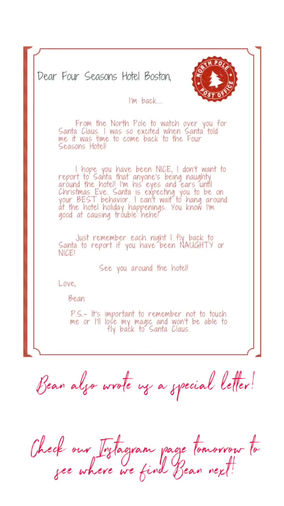 NORTH POLE
POST OFFICE
Dear Four Seasons Hotel Boston,
I'm back....
From the North Pole to watch over you for
Santa Claus. I was so excited when Santa told
me it was time to come back to the Four
Seasons Hotel!
I hope you have been NICE, I don't want to
report to Santa that anyone's being naughty
around the hotel! I'm his eyes and ears until
Christmas Eve. Santa is expecting you to be on
your BEST behavior. I can't wait to hang around
at the hotel holiday happenings. You know I'm
good at causing trouble hehe!
Just remember each night I fly back to
Santa to report if you have been NAUGHTY or
NICE!
See you around the hotel!
Love,
Bean
P.S.- It's important to remember not to touch
me or I'll lose my magic and won't be able to
fly back to Santa Claus.
Bean also wrote us a special letter!
Check our Instagram page tomorrow to
see where we find Bean next!